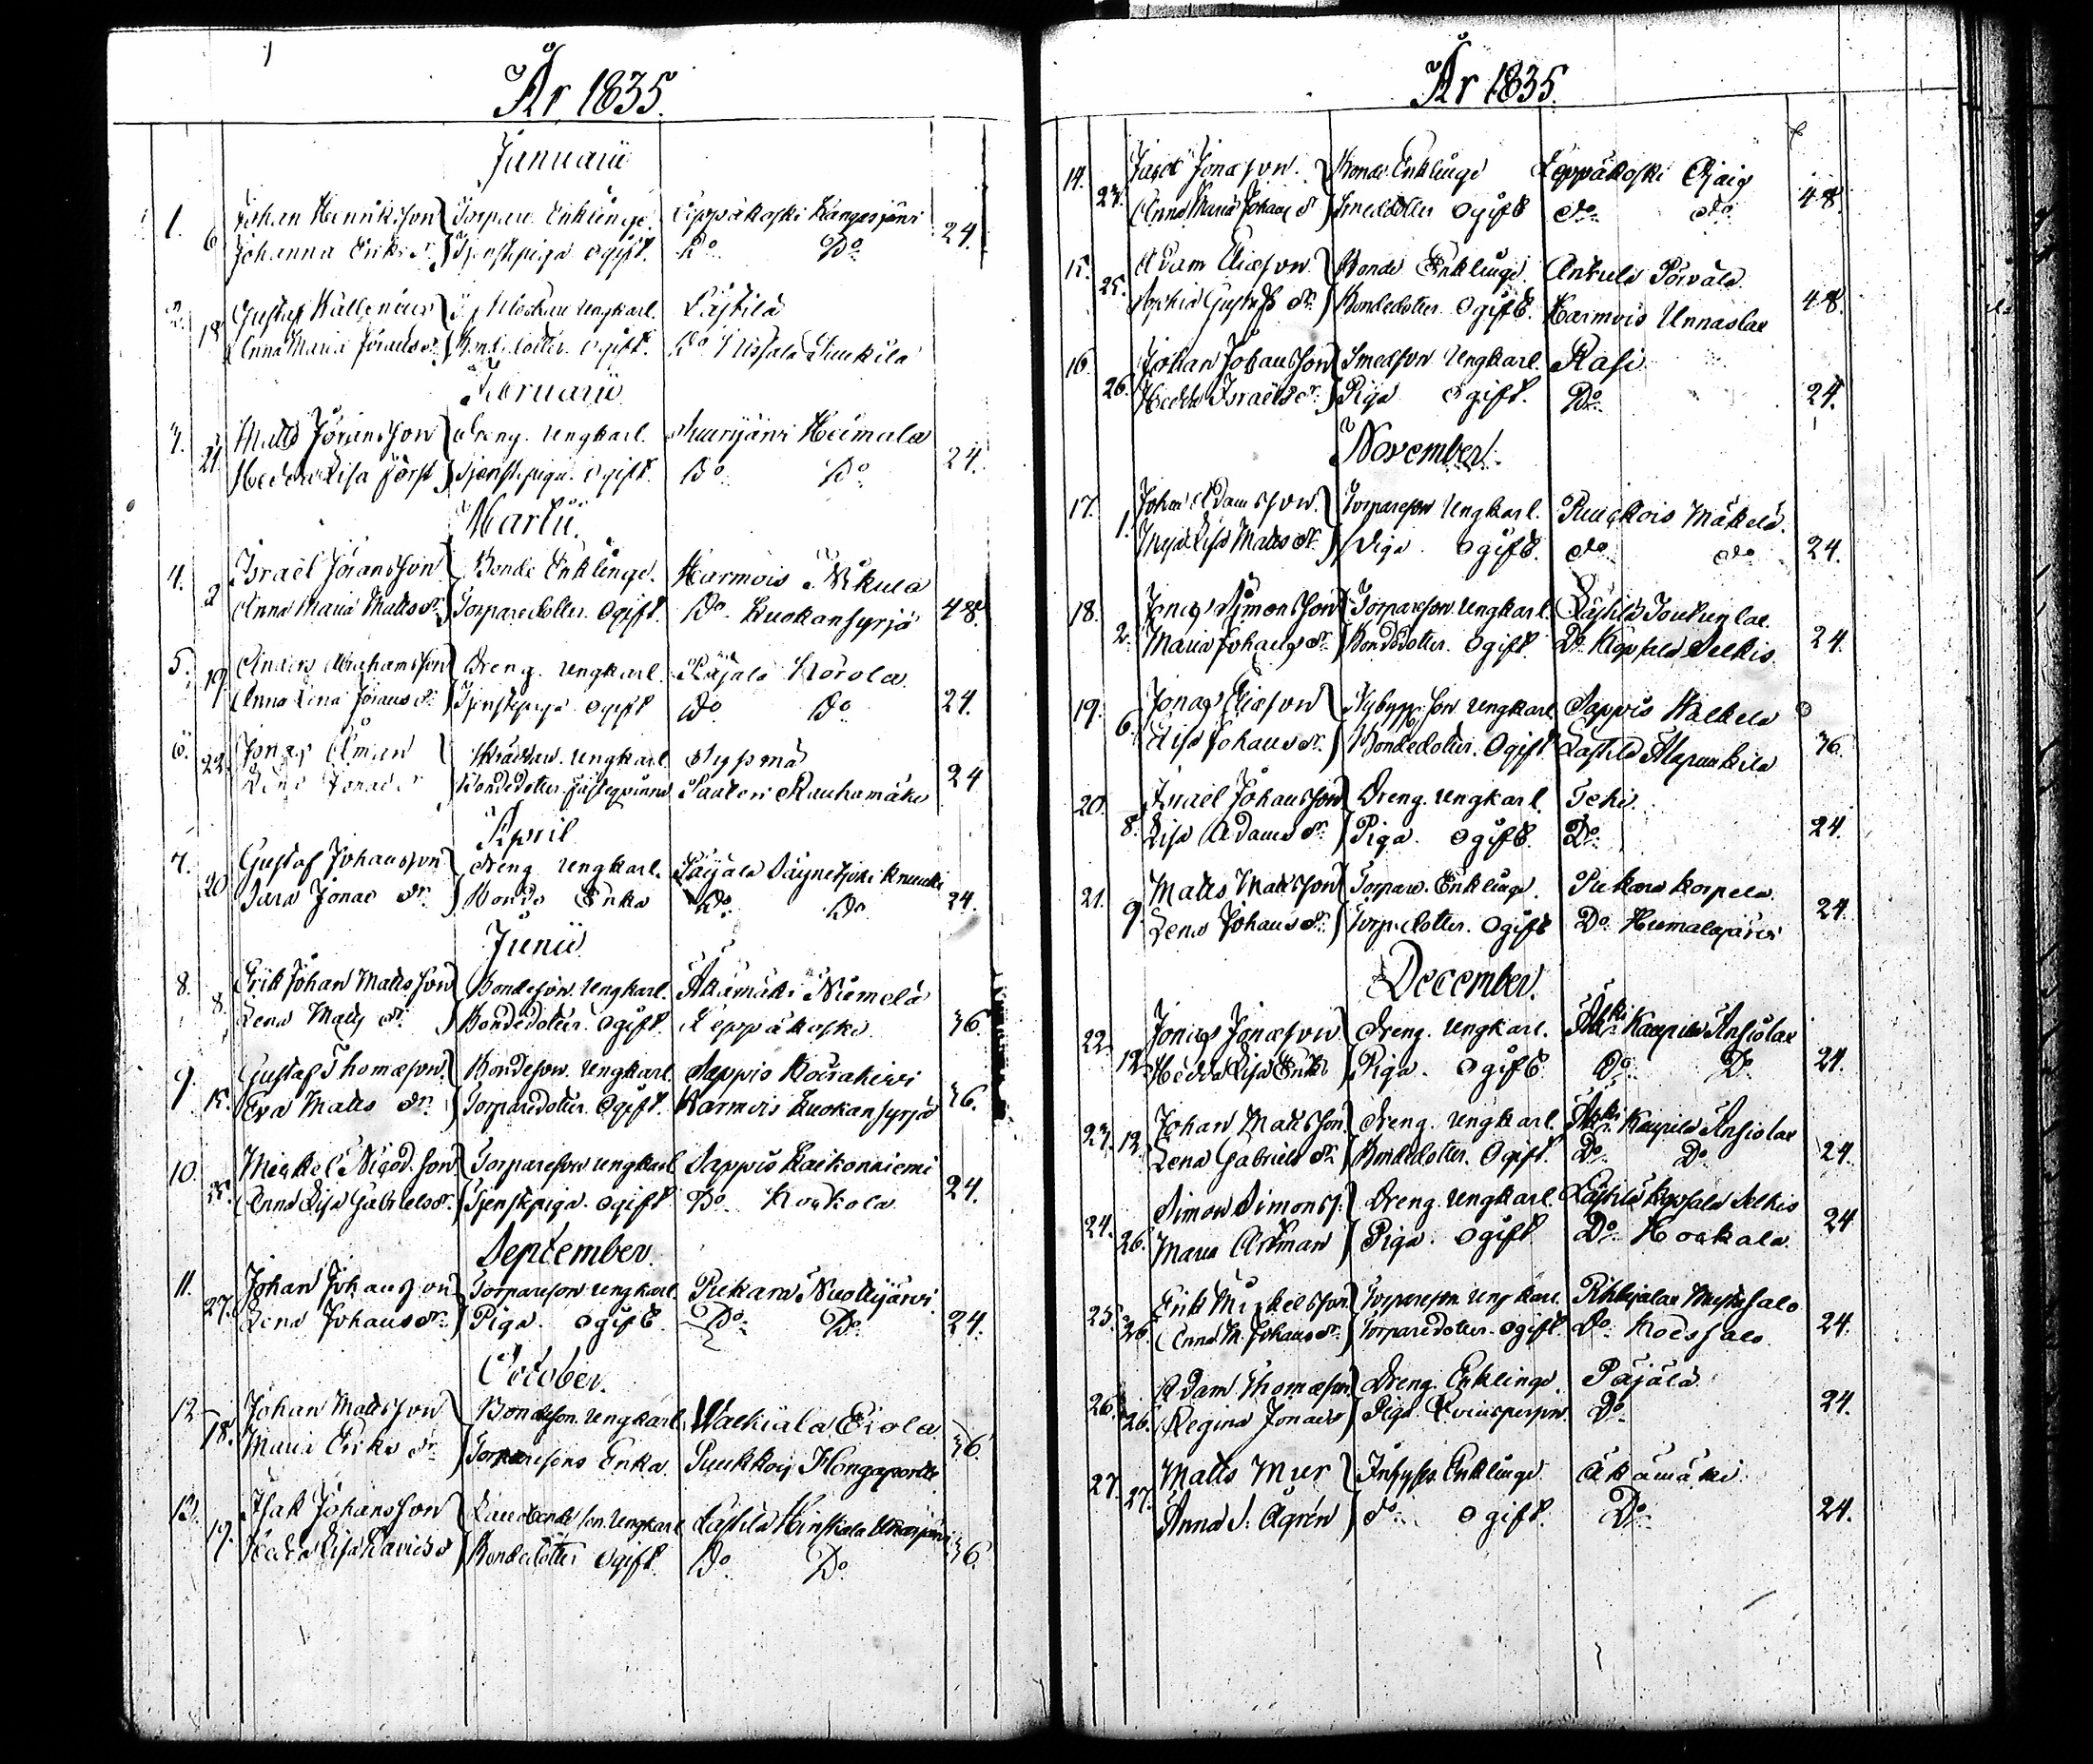 År 1835.
Januarii
1. 6. Johan Henriksson Torpare Enklinge. Leppäkoski Kangasjärvi
Johanna Eriks dr. Tjenstepiga ogift. Do Do 24.
2. 18. Gustaf Ungkarl. Lästilä
Anna Maria Jörans dr. Bondedotter. ogift. Do
Februarii
3. 21. Matts Jöransson Dreng. Ungkarl. Suurijärvi Heimala
Hedda Lisa Förs Tjenstepiga. ogift. Do Do 24.
Martii.
4. 2 Israël Jöransson Bonde Enklinge. Karmois Nikula
Anna Maria Matts dr. Torparedotter. Ogift. Do Luokansyrjä 48.
5. 19. Anders Abrahamsson Dreng. Ungkarl. Päjälä Körola
Anna Lena Jörans dr. Tjenstepiga ogift Do Do 24.
6. 22. Jonas Öman Skräddare. Ungkarl Sypmä
Lena Jonas dr Bondedotter. Fästeqvinna Rauhamäki 24
April
7. 20 Gustaf Johansson Dreng Ungkarl. Päjälä
Sara Jonas dr. Bonde Enka Do Do 24.
Junii
8. 8. Erik Johan Mattsson Bondeson. Ungkarl. Äkämäki Niemelä
Lena Matts dr. Bondedotter. ogift. Leppäkoski 36.
9. 15. Gustaf Thomasson. Bondeson. Ungkarl. Sappis Koivakivi
Eva Matts dr. Torparedotter. Ogift. Karmois Luokansyrjä 36.
10. 25. Mickel Nicod. son Torpareson ungkarl Sappis Kaikonniemi
Anna Lisa Gabriels dr. Tjenstepiga. ogift Do Koskola 24.
September.
11. 27. Johan Johansson Torpareson Ungkarl. Piekara Nuottijärvi
Lena Johans dr. Piga. ogift. Do Do 24.
October.
12. 18. Johan Mattsson Bondeson. Ungkarl. Waekiala Eiola
Maria Eriks dr. Torparesons Enka. Puukkois Hongaportti 36.
13. 19. Isak Johansson Landbonde son. Ungkarl Lästilä Hinskala
Hedda Lisa Davids dr Bondedotter Ogift Do Do 36.
År 1835.
14. 23. Jacob Jonasson. Bonde Enklinge Leppäkoski
Anna Maria Johans dr Smeddotter Ogift do do 48.
15. 25. Adam Eliasson Bonde Enklinge. Ankula Porvala
Sophia Gustafs dr. Bondedotter. ogift. Karmois Unnaslax 48.
16. 26. Johan Johansson Smedson Ungkarl. Rasi
Hedda Israëls dr. Piga ogift. Do 24.
November.
17. 1. Johan Adamsson. Torpareson Ungkarl. Puuckois Mäkelä
Maja Lisa Matts dr. Piga ogift. do do 24.
18. 2. Jonas Simonsson Torpareson. Ungkarl. Lästilä
Maria Johans dr. Bondedotter. Ogift. Do Kopsala Selkis 24.
19. 6. Jonas Eliasson Nybygg. son Ungkarl Sappis Halkela
Lisa Johans dr. Bondedotter. Ogift Lästilä 36.
20. 8. Israël Johansson Dreng. Ungkarl Tehi.
Lisa Adams dr. Piga. ogift. Do 24.
21. 9 Matts Mattsson Torpare. Enklinge. Piekara Korpela
Lena Johans dr. Torp. dotter. Ogift Do Heimalajärvi 24.
December.
22. 12. Jonas Jonasson Dreng. Ungkarl. Kaupila Ansiolax
Hedda Lisa Eriks Piga. ogift. Do Do 24.
23. 12. Johan Mattsson. Dreng. Ungkarl. Kaupila Ansiolax
Lena Gabriels dr Bondedotter. Ogift. Do Do 24.
24. 26. Simon Simonss. Dreng. Ungkarl. Lästilä Kopsala Selkis
Maria Artman Piga. ogift Do Koskala 24
25. 26. Erik Mickelsson Torpareson Ungkarl.
Anna M. Johans dr. Torparedotter. ogift. Do Koissalo 24.
26. 26. Adam Thomasson Dreng. Enklinge. Päjälä
Regina Jonas dr Piga. Do 24.
27. 27. Matts Mur Inhyses. Enklinge. Äkämäki
Anna S. Ågrén do ogift. Do 24.